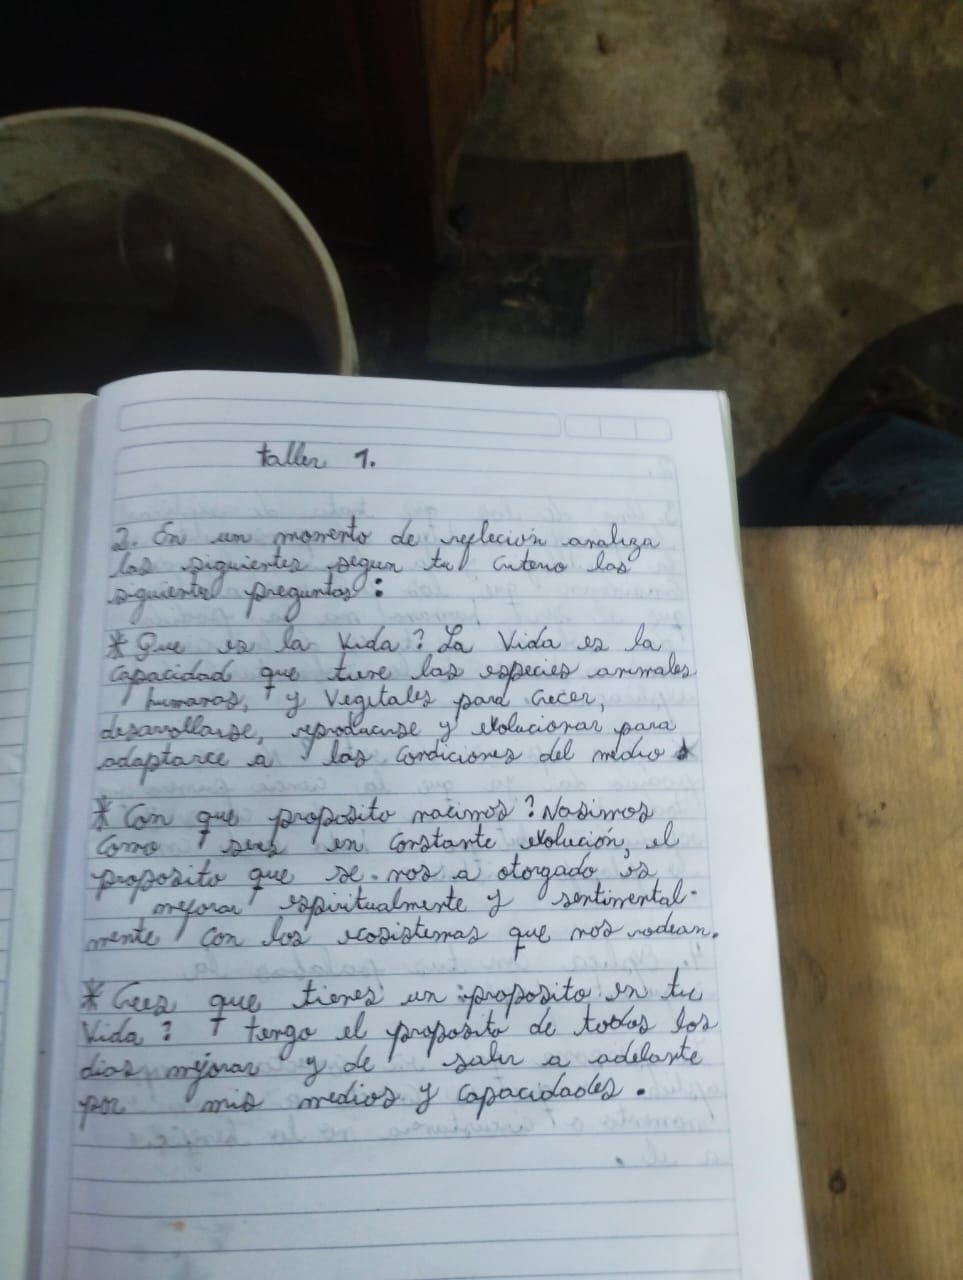 taller 1.
2. En un momento de reflecion analiza
las siguientes segun tu criterio las
siguiente preguntas:
* Que es la vida? La Vida es la
capacidad que tiene las especies animales
humanas, y Vegetales para crecer,
desarrollarse, reproducirse y evolucionar para
adaptarce a las condiciones del medio
* Con que proposito nacimos? Nasimos
como seres en constante evolución, el
proposito que se nos a otorgado es
mejorar espiritualmente y sentimental-
mente con los ecosistemas que nos rodean.
* Crees que tienes un proposito en tu
Vida? tengo el proposito de todos los
dias mejorar y de salir a adelante
por mis medios y capacidades.